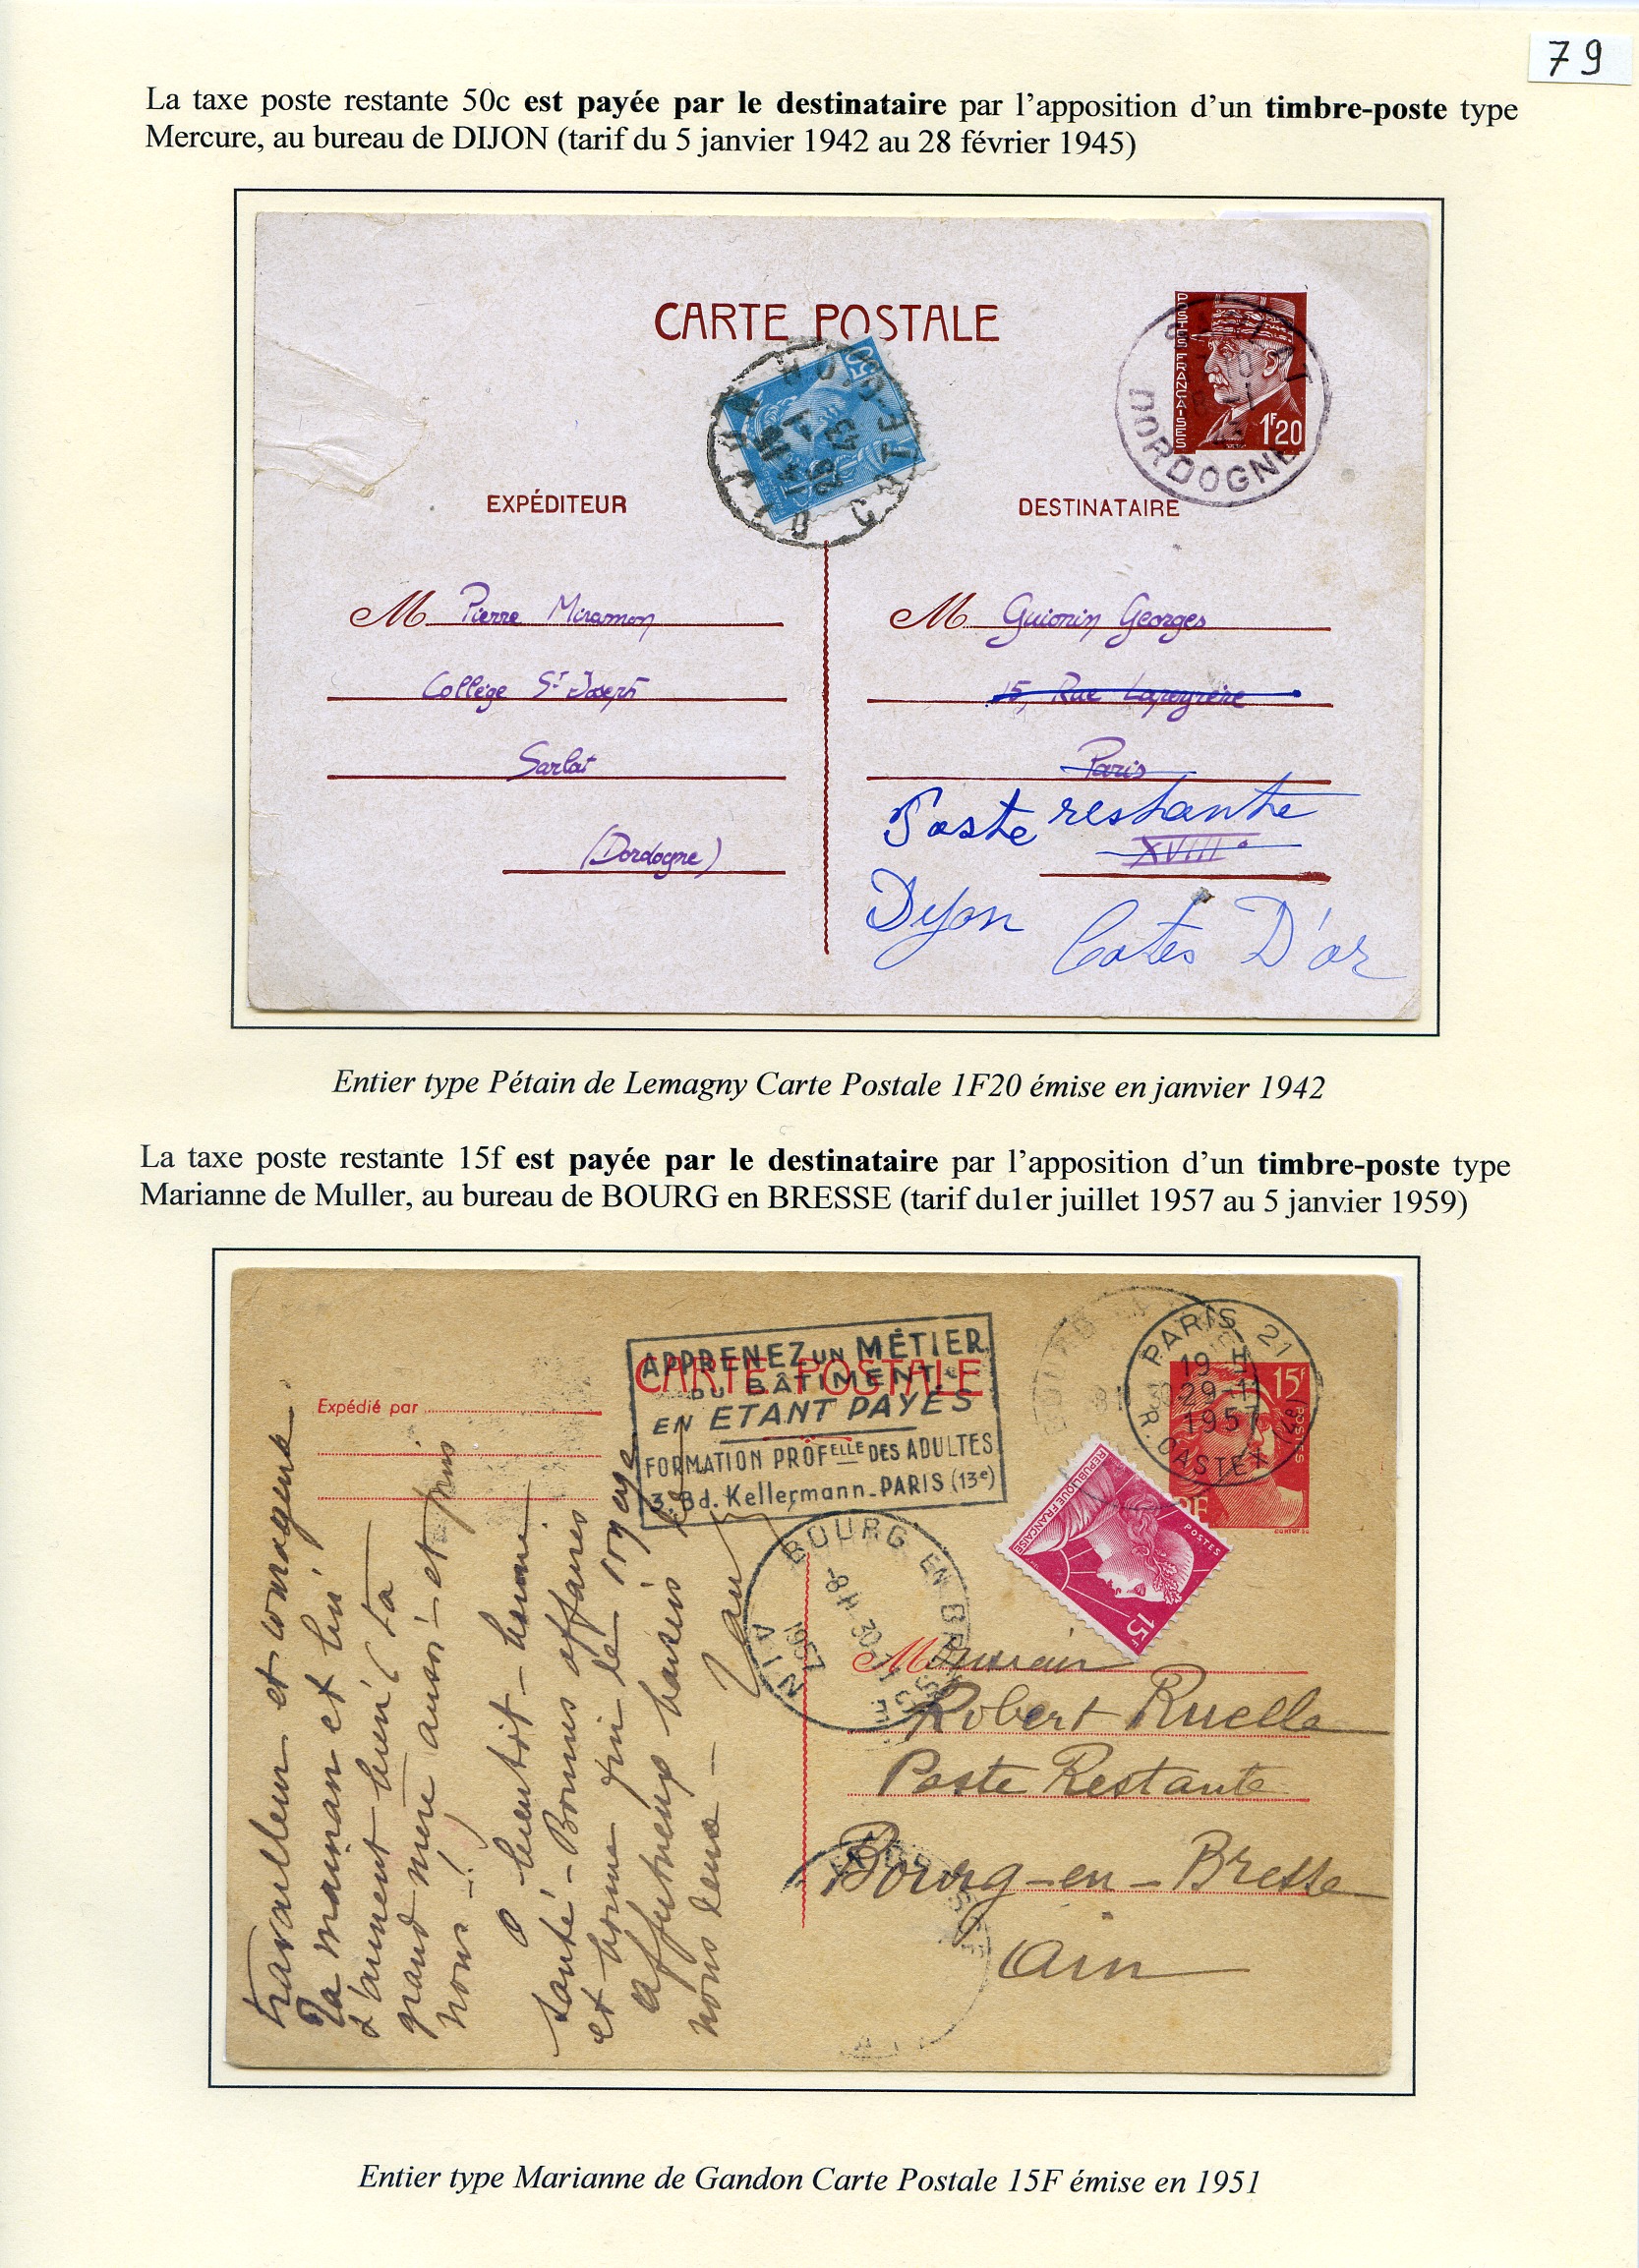 79
La taxe poste restante 50c est payée par le destinataire par l'apposition d'un timbre-poste type
Mercure, au bureau de DIJON (tarif du 5 janvier 1942 au 28 février 1945)
CARTE POSTALE
POSTES FRANÇAISES
1F20
DORDOGNE
50
DIJON
14 H
25 -1
43
CÔTE D'OR
EXPÉDITEUR
DESTINATAIRE
M Pierre Miramon
Collège St Joseph
Sarlat
(Dordogne)
M Guionin Georges
15, Rue Lapeyrère
Paris
Poste restante
XVIII°
Dijon Cotes D'or
Entier type Pétain de Lemagny Carte Postale 1F20 émise en janvier 1942
La taxe poste restante 15f est payée par le destinataire par l'apposition d'un timbre-poste type
Marianne de Muller, au bureau de BOURG en BRESSE (tarif du1er juillet 1957 au 5 janvier 1959)
CARTE POSTALE
APPRENEZ UN MÉTIER
DU BÂTIMENT
EN ETANT PAYÉS
FORMATION PROFELLE DES ADULTES
3, Bd. Kellermann-PARIS (13e)
PARIS 21
19 H
29-11
1957
15F
POSTES
Expédié par
REPUBLIQUE FRANÇAISE
POSTES
15F
BOURG EN BRESSE
8 H
1957
AIN
travailleur et courageux
Ta maman et lui
t'aiment bien (ta
grand mère aussi - et puis
nous - !
à bientôt - bonne
santé - Bonnes affaires
et bonne fin de voyage
affectueux baisers de
nous deux -
Monsieur
Robert Ruelle
Poste Restante
Bourg-en-Bresse
Ain
Entier type Marianne de Gandon Carte Postale 15F émise en 1951